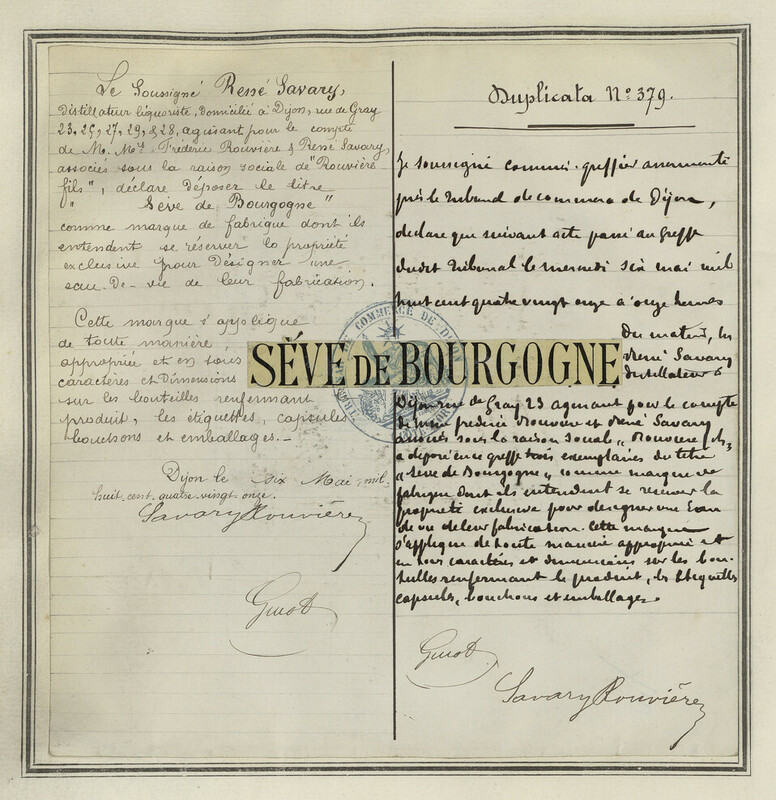 Le Soussigné René Savary,
Distillateur liquoriste, Domicilié à Dijon, rue de Gray
23. 25, 27, 29, & 28, agissant pour le compte
de M. Mrs Frédéric Rouvière & René Savary,
associés sous la raison sociale de "Rouvière
fils", déclare déposer le titre
" Sève de Bourgogne "
comme marque de fabrique dont ils
entendent se réserver la propriété
exclusive pour Désigner une
eau-De-vie de leur fabrication.
Cette marque s'applique
de toute manière
appropriée et en tous
caractères et Dimensions
sur les bouteilles renfermant
produit, les étiquettes, capsules
bouchons et emballages.-
Dijon le six Mai mil-
huit-cent-quatre-vingt-onze.
Savary Rouvière
Guiot
SÈVE DE BOURGOGNE
COMMERCE DE DIJON
Duplicata No 379.
Je soussigné commis-greffier assermenté
près le Tribunal de commerce de Dijon,
déclare que suivant acte passé au Greffe
dudit Tribunal le mercredi six mai mil
huit cent quatre vingt onze à onze heures
du matin, les
René Savary
distillateur à
Dijon rue de Gray 23 agissant pour le compte
de Mrs frédéric Rouvière et René Savary
associés sous la raison sociale „ Rouvière fils „
a déposé en ce greffe trois exemplaires du titre
„ Sève de Bourgogne „ comme marque de
fabrique dont ils entendent se réserver la
propriété exclusive pour désigner une Eau
de vie de leur fabrication. Cette marque
s'applique de toute manière appropriée et
en tous caractères et dimensions sur les bou-
teilles renfermant le produit, les Etiquettes
capsules, bouchons et emballages.
Guiot
Savary Rouvière